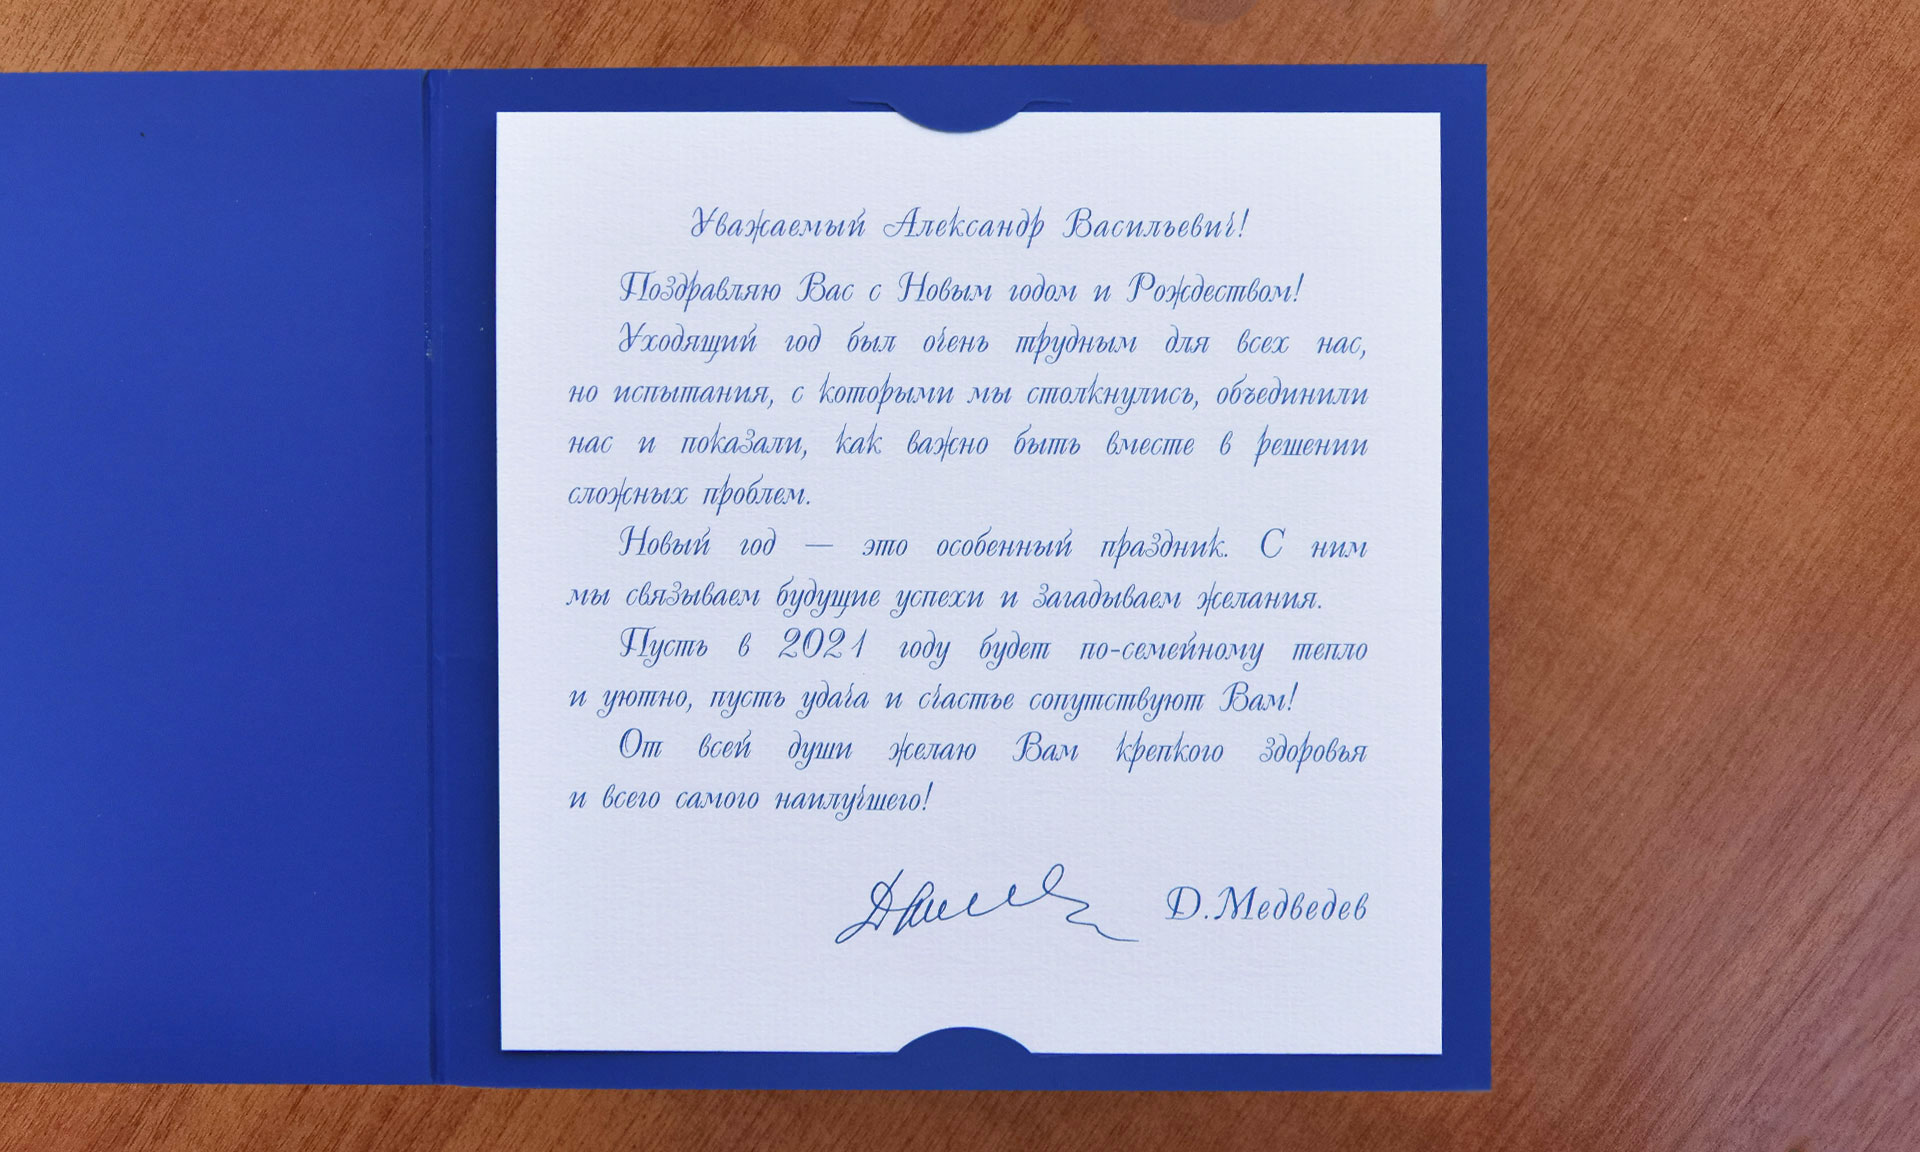 Уважаемый Александр Васильевич!
Поздравляю Вас с Новым годом и Рождеством!
Уходящий год был очень трудным для всех нас,
но испытания, с которыми мы столкнулись, объединили
нас и показали, как важно быть вместе в решении
сложных проблем.
Новый год — это особенный праздник. С ним
мы связываем будущие успехи и загадываем желания.
Пусть в 2021 году будет по-семейному тепло
и уютно, пусть удача и счастье сопутствуют Вам!
От всей души желаю Вам крепкого здоровья
и всего самого наилучшего!
Д.Медведев